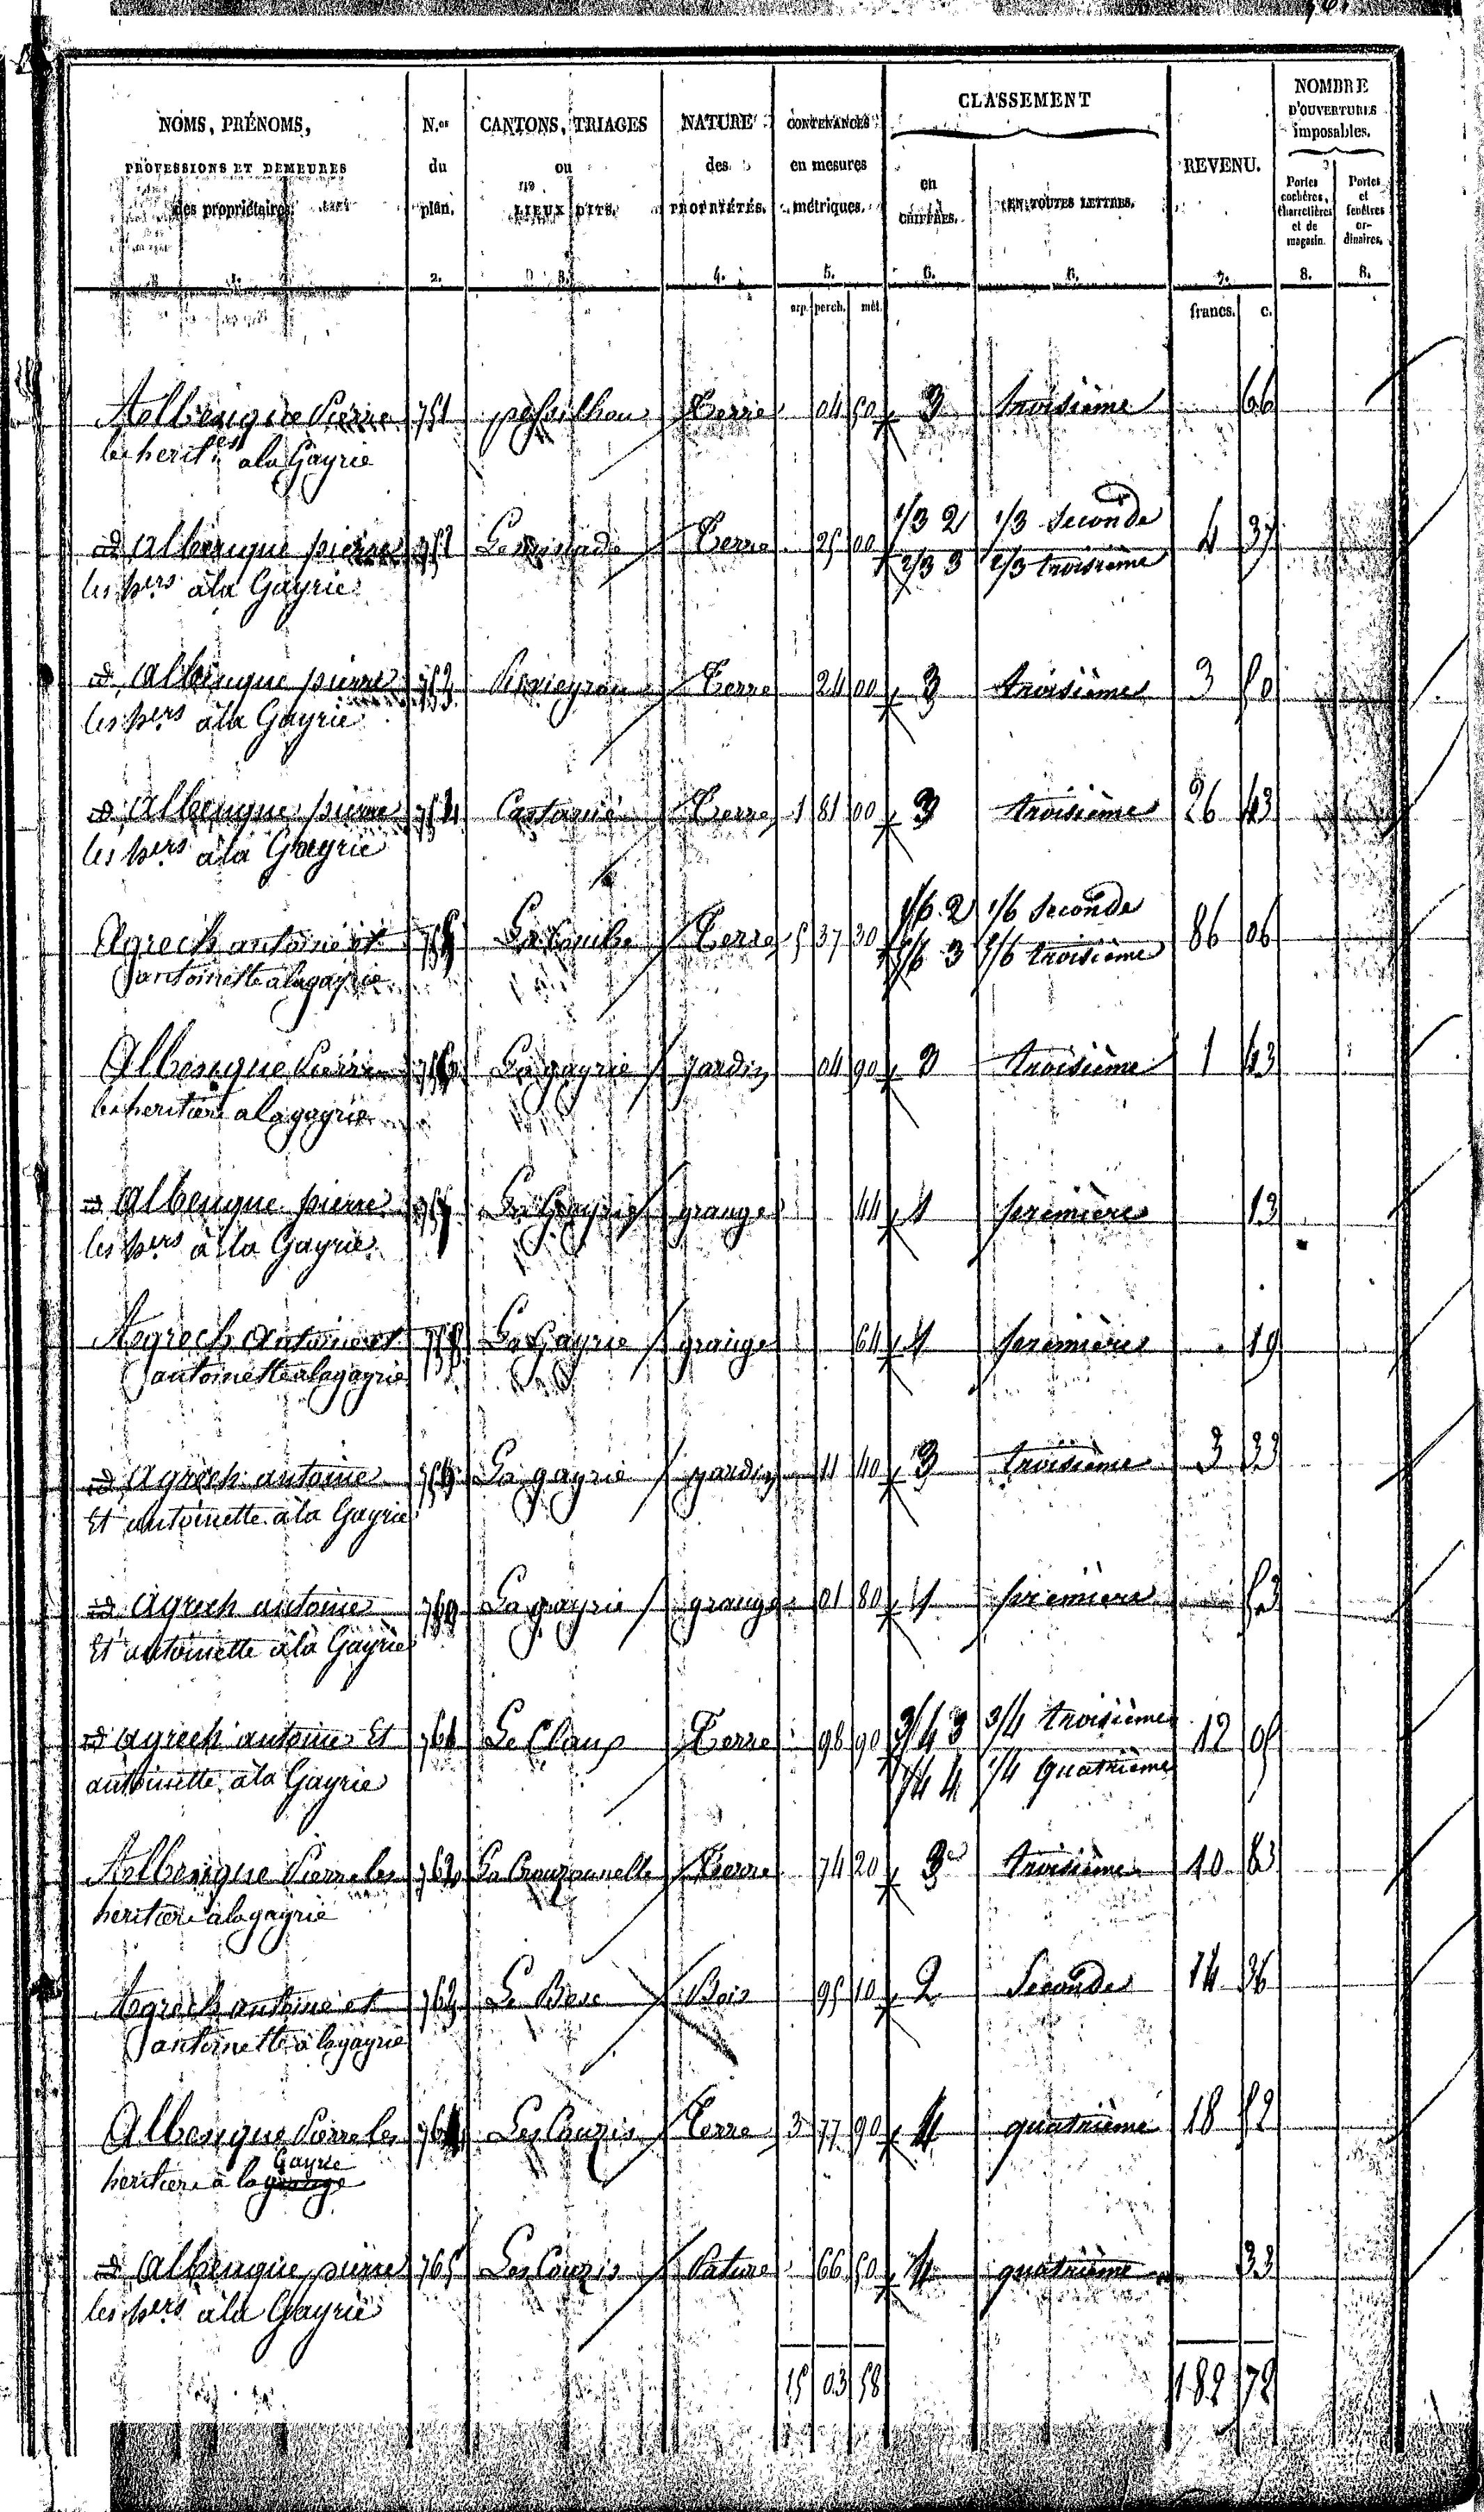 NOMS, PRÉNOMS,
PROFESSIONS ET DEMEURES
des propriétaires.
1.
N.os
du
plan.
2.
CANTONS, TRIAGES
ou
LIEUX DITS.
3.
NATURE
des
PROPRIÉTÉS.
4.
CONTENANCES
en mesures
métriques.
5.
arp. perch. mèt.
CLASSEMENT
en
CHIFFRES.
6.
EN TOUTES LETTRES.
6.
REVENU.
7.
francs. c.
NOMBRE
D'OUVERTURES
imposables.
Portes
cochères,
charretières
et de
magasin.
8.
Portes
et
fenêtres
or-
dinaires.
8.
Albenque Pierre 751 Terre 04 50 3 troisième 66
les herit.es a la Gayrie
id albenque pierre 752 Terre 25 00 1/3 2 1/3 Seconde 4 37
2/3 3 2/3 troisième
les hers à la Gayrie
id albenque pierre 753 Terre 24 00 3 troisième 3 50
les hers à la Gayrie
id albenque pierre 754 Castanié Terre 1 81 00 3 troisième 26 43
les hers à la Gayrie
Agrech antoine et 755 La Combe Terre 5 37 30 1/6 2 1/6 Seconde 86 06
5/6 3 5/6 troisième
antoinette a la gayrie
Albenque Pierre 756 La gayrie jardin 04 90 3 troisième 1 43
les heritiers a la gayrie
id albenque pierre 757 La Gayrie grange 44 1 première 13
les hers à la Gayrie
Agrech Antoine et 758 La Gayrie grange 64 1 première 19
antoinette a la gayrie
id agrech antoine 759 La gayrie jardin 11 40 3 troisième 3 33
Et antoinette à la Gayrie
id agrech antoine 760 La gayrie grange 01 80 1 première 53
Et antoinette à la Gayrie
id agrech antoine Et 761 Le Claup Terre 98 90 3/4 3 3/4 troisième 12 05
1/4 4 1/4 Quatrième
antoinette à la Gayrie
Albenque Pierre les 762 La Crouzounelle Terre 74 20 3e troisième 10 83
heritiers a la gayrie
Agrech antoine et 763 Le Bosc Bois 95 10 2 Seconde 14 36
antoinette à la gayrie
Albenque Pierre les 764 Les Couzis Terre 3 77 90 4 quatrième 18 52
Gayrie
heritiers à la grange
id albenque pierre 765 Les Couzis Pature 66 50 4 quatrième 33
les hers à la Gayrie
15 03 58 182 72